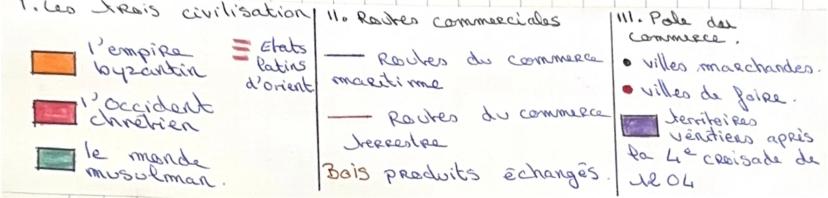 I. Les trois civilisation
l'empire
byzantin
Etats
latins
d'orient
l'Occident
chrétien
le monde
musulman.
II. Routes commerciales
Routes du commerce
maritime
Routes du commerce
terrestre
Bois produits échangés.
III. Pole des
commerce.
villes marchandes.
villes de foire.
territoires
vénitiens après
la 4e croisade de
1204